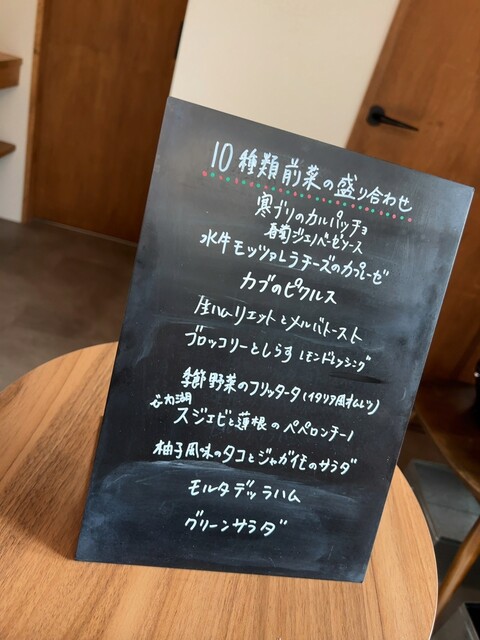 10種類前菜の盛り合わせ
寒ブリのカルパッチョ
春菊ジェノベーゼソース
水牛モッツァレラチーズのカプレーゼ
カブのピクルス
生ハムリエットとメルバトースト
ブロッコリーとしらす レモンドレッシング
季節野菜のフリッタータ(イタリア風オムレツ)
びわ湖
スジエビと蓮根のペペロンチーノ
柚子風味のタコとジャガイモのサラダ
モルタデッラハム
グリーンサラダ